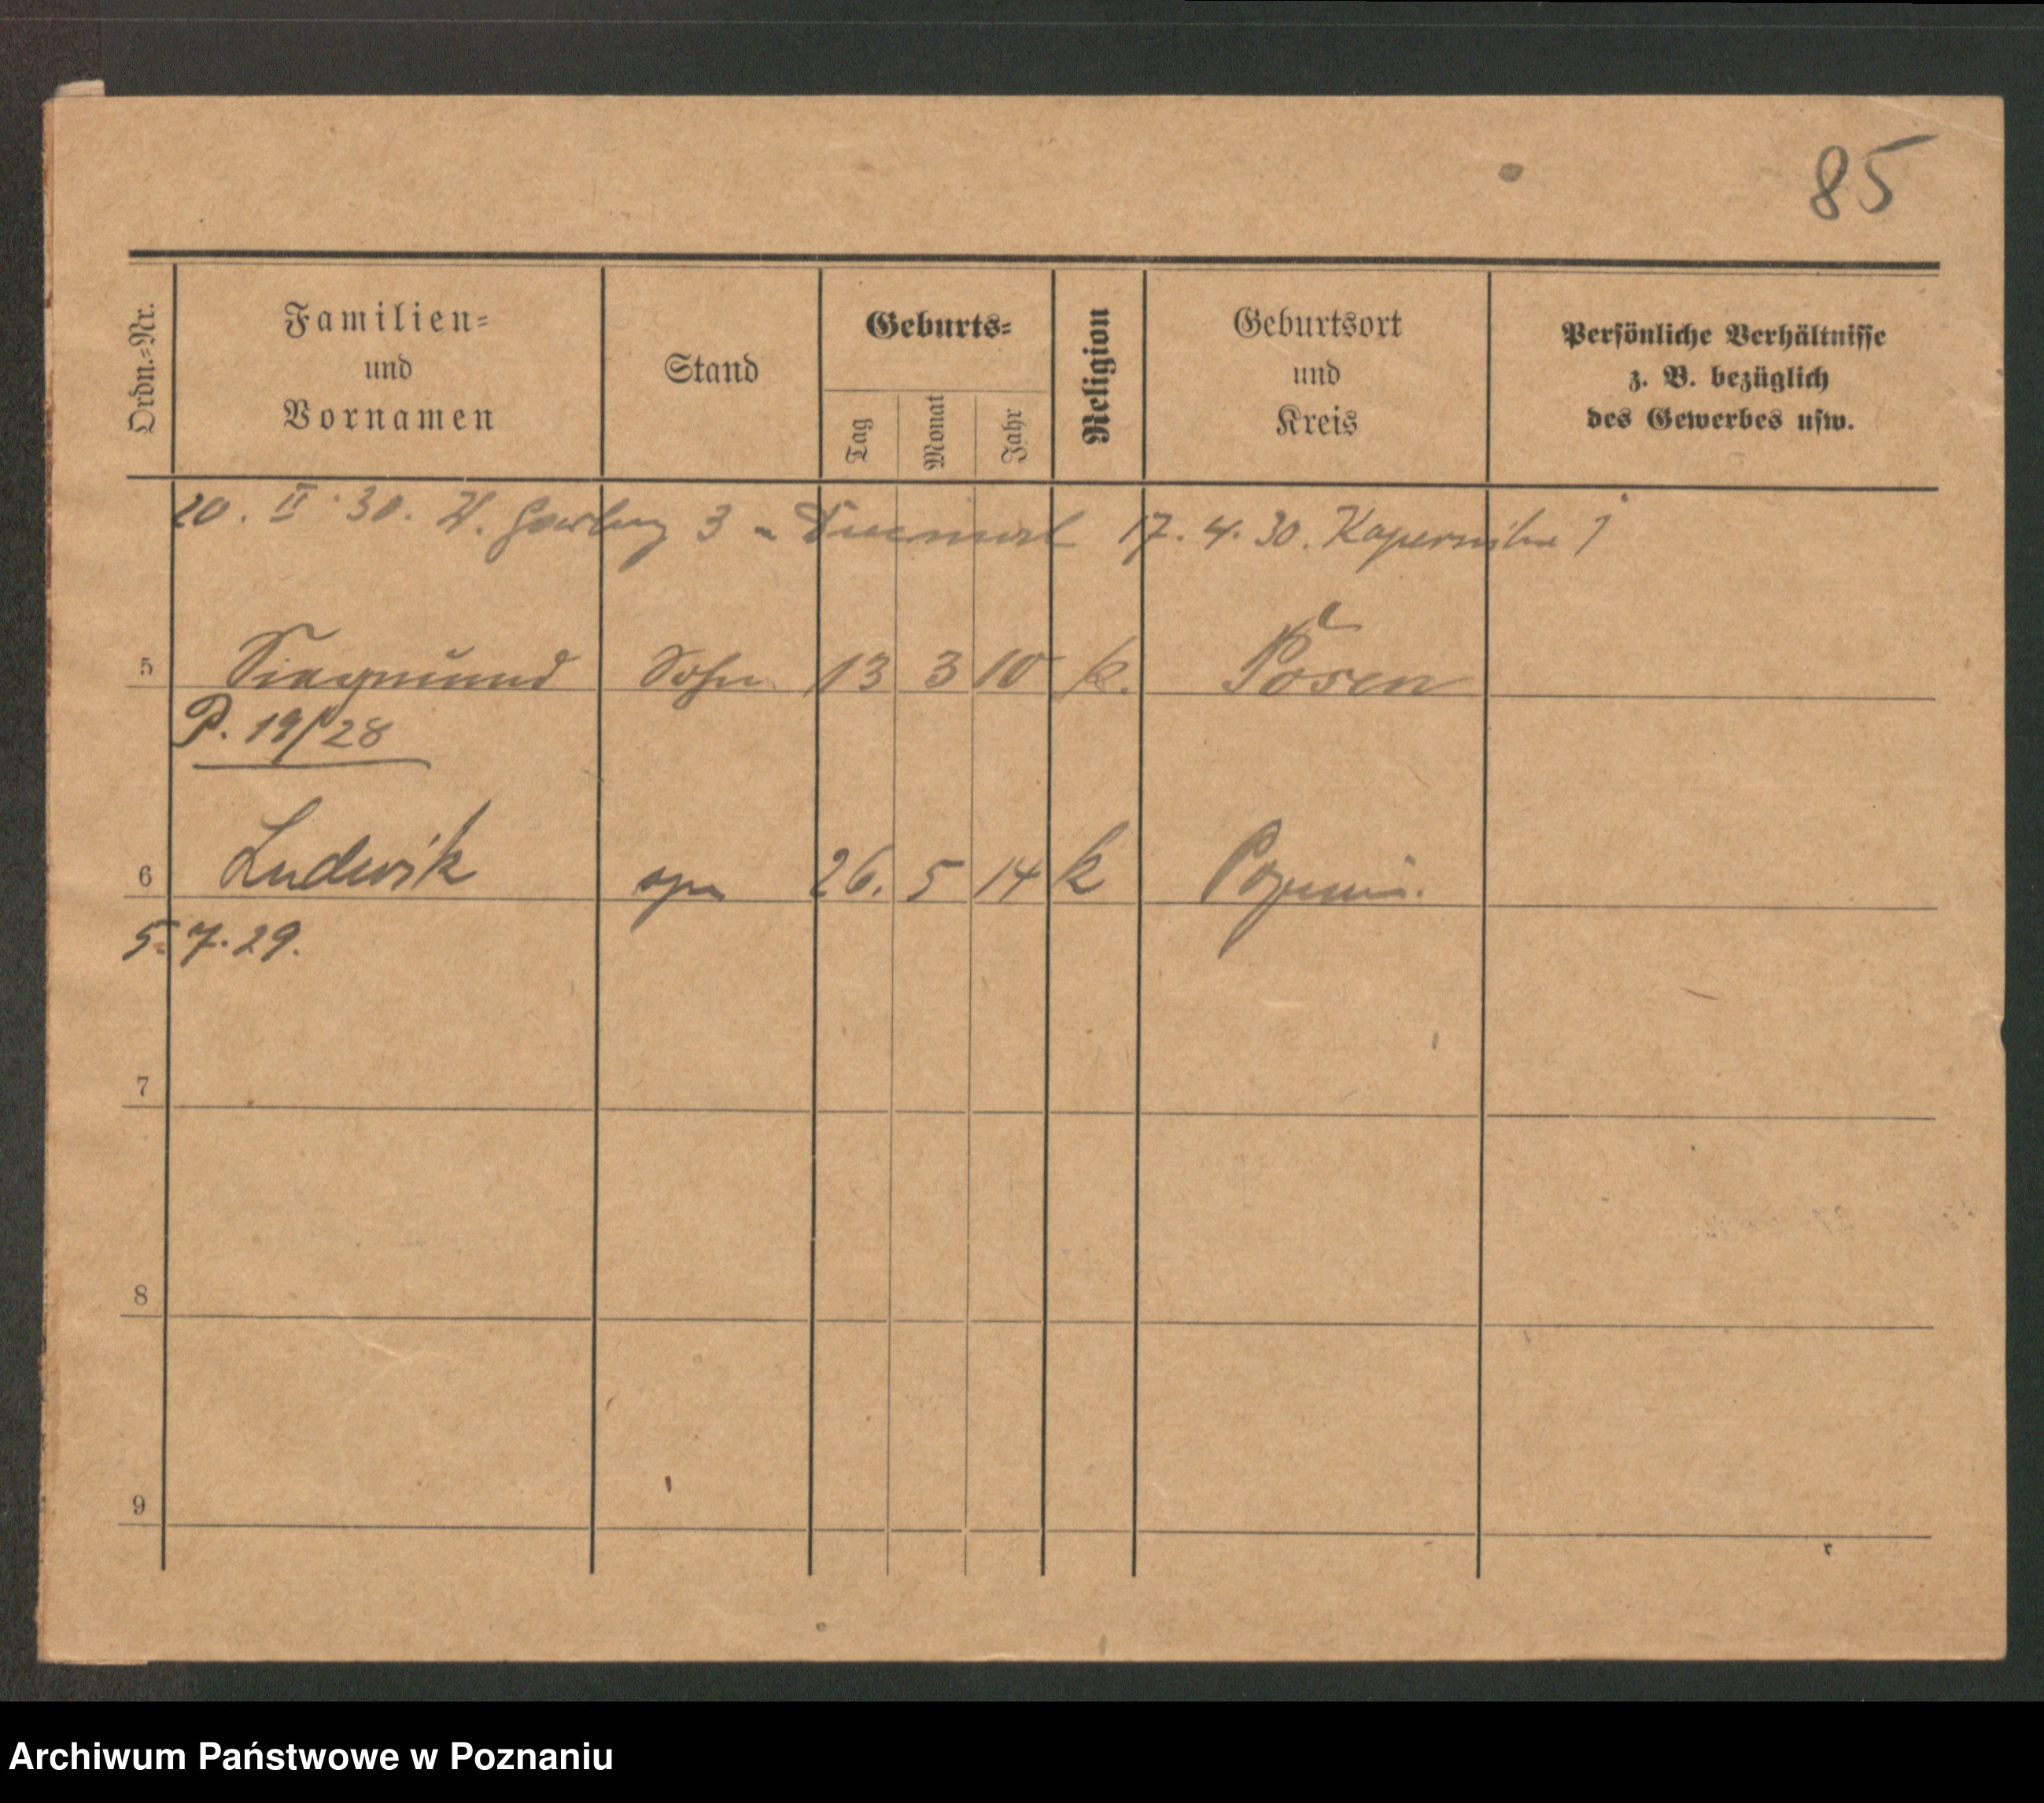 85
Ordn.-Nr.
Familien-
und
Vornamen
Stand
Geburts-
Tag
Monat
Jahr
Religion
Geburtsort
und
Kreis
Persönliche Verhältnisse
z. B. bezüglich
des Gewerbes usw.
20. II. 30. W. Garbary 3 17. 4. 30. Kopernika 7
5 Siegmund Sohn 13 3 10 k. Posen
P. 19/28
6 Ludwik syn 26. 5 14 k Poznań.
5. 7. 29.
7
8
9
Archiwum Państwowe w Poznaniu